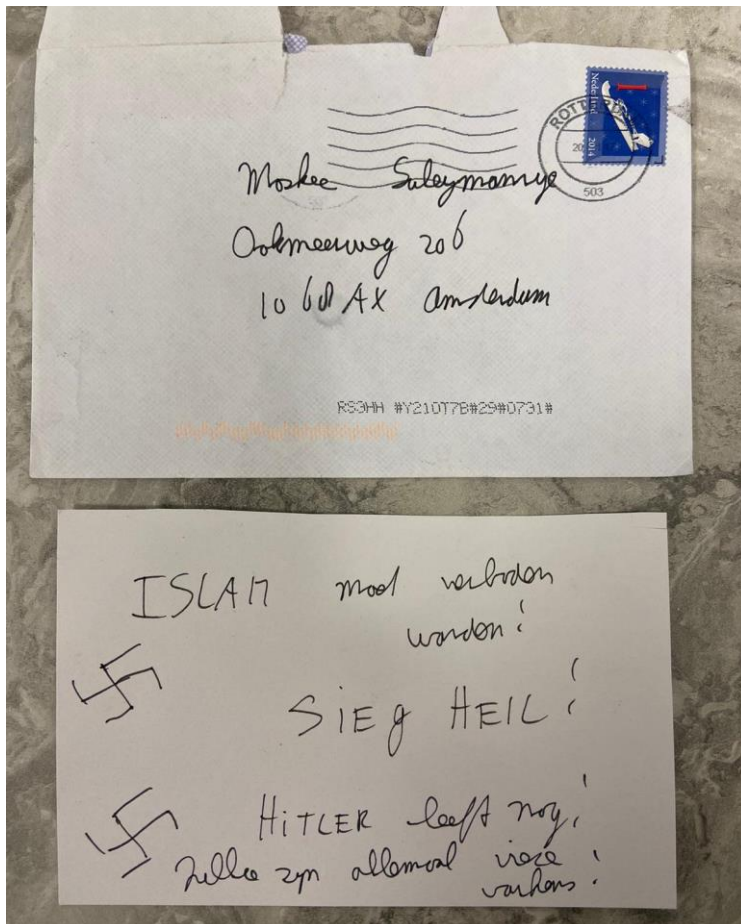 Nederland 2014
1
ROTTERDAM
20
503
Moskee Suleymaniye
Ookmeerweg 206
1068 AX Amsterdam
RS3HH #Y210T7B#29#0731#
ISLAM moet verboden
worden!
SIEg HEIL!
HiTLER leeft nog!
Jullie zyn allemaal vieze
varkens!